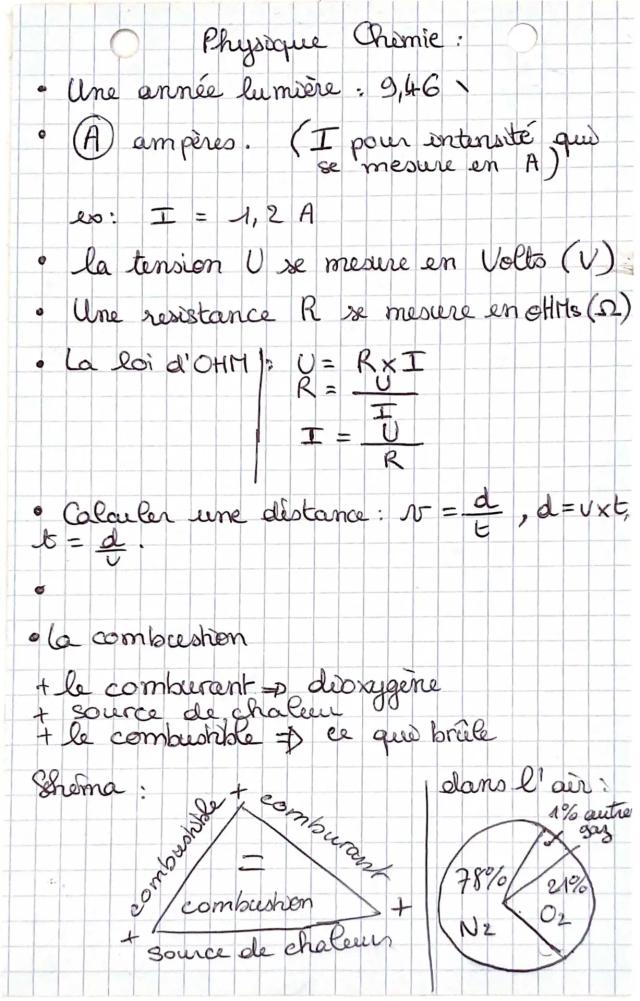 Physique Chimie :
• Une année lumière : 9,46 \
• Ⓐ ampères. (I pour intensité qui
se mesure en A)
ex: I = 1,2 A
• la tension U se mesure en Volts (V)
• Une resistance R se mesure en oHMs (Ω)
• La loi d'OHM : U = R x I
R = U / I
I = U / R
• Calculer une distance : v = d / t , d = v x t,
t = d / v .
•
• la combustion
+ le comburant ⇒ dioxygène
+ source de chaleur
+ le combustible ⇒ ce qui brûle
Shéma :
combustible + comburant
=
combustion
+ +
source de chaleur
dans l'air :
1% autre
gaz
78% 21%
N2 O2